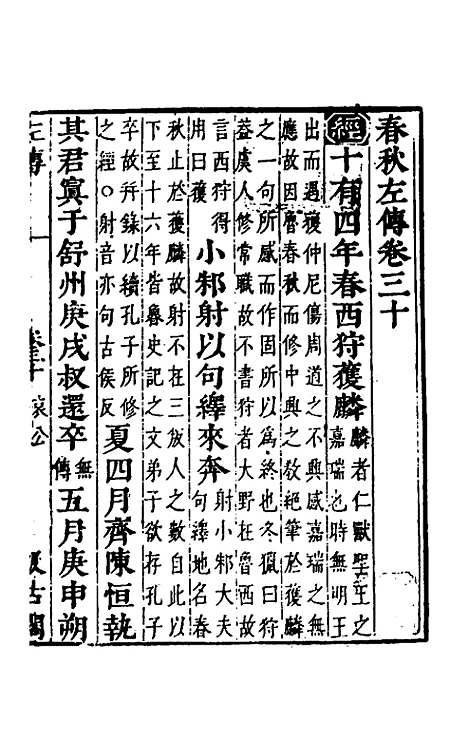 春秋左傳卷三十
經十有四年春西狩獲麟麟者仁獸聖王之
嘉瑞也時無明王
出而遇獲仲尼傷周道之不興感嘉瑞之無
應故因魯春秋而修中興之教絕筆於獲麟
之一句所感而作固所以為終也冬獵曰狩
蓋虞人修常職故不書狩者大野在魯西故
言西狩得
用曰獲
小邾射以句繹來奔射小邾大夫
句繹地名春
秋止於獲麟故射不在三叛人之數自此以
下至十六年皆魯史記之文弟子欲存孔子
卒故并錄以續孔子所修
之經○射音亦句古侯反
夏四月齊陳恒執
其君寘于舒州庚戌叔還卒無傳五月庚申朔
左傳 卷三十 哀公 汲古閣